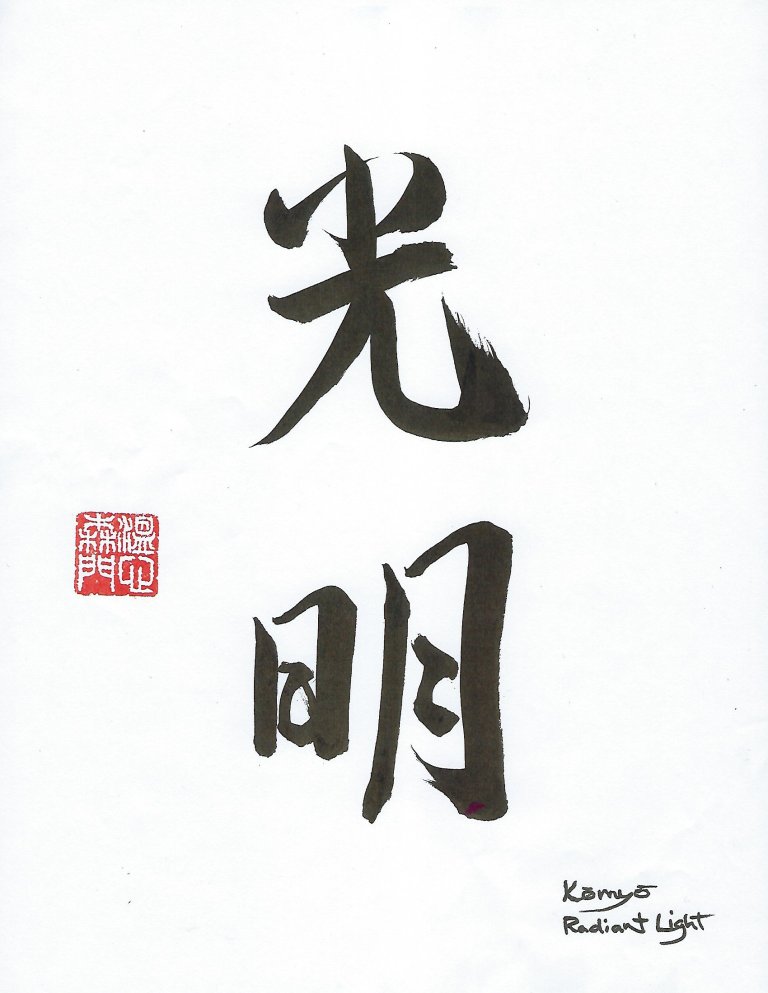 光
明
Kōmyō
Radiant Light